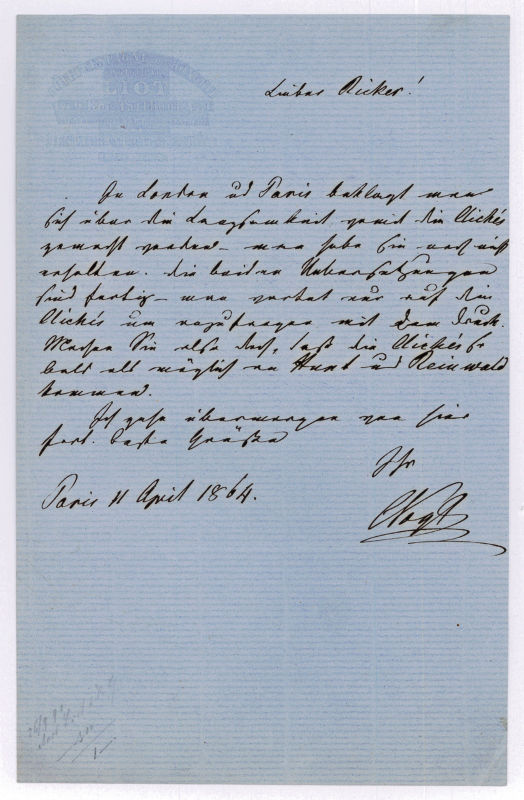 Lieber Ricker!
In London ud Paris beklagt man
sich über die Langsamkeit womit die Clichés
gemacht werden – man habe sie noch nicht
erhalten. Die beiden Uebersetzungen
sind fertig – man wartet nur auf die
Clichés um anzufangen mit dem Druck.
Machen Sie also doch, daß die Clichés so
bald als möglich an Hunt und Reinwald
kommen.
Ich gehe übermorgen von hier
fort. Beste Grüße
Ihr
CVogt
Paris 11 April 1864.